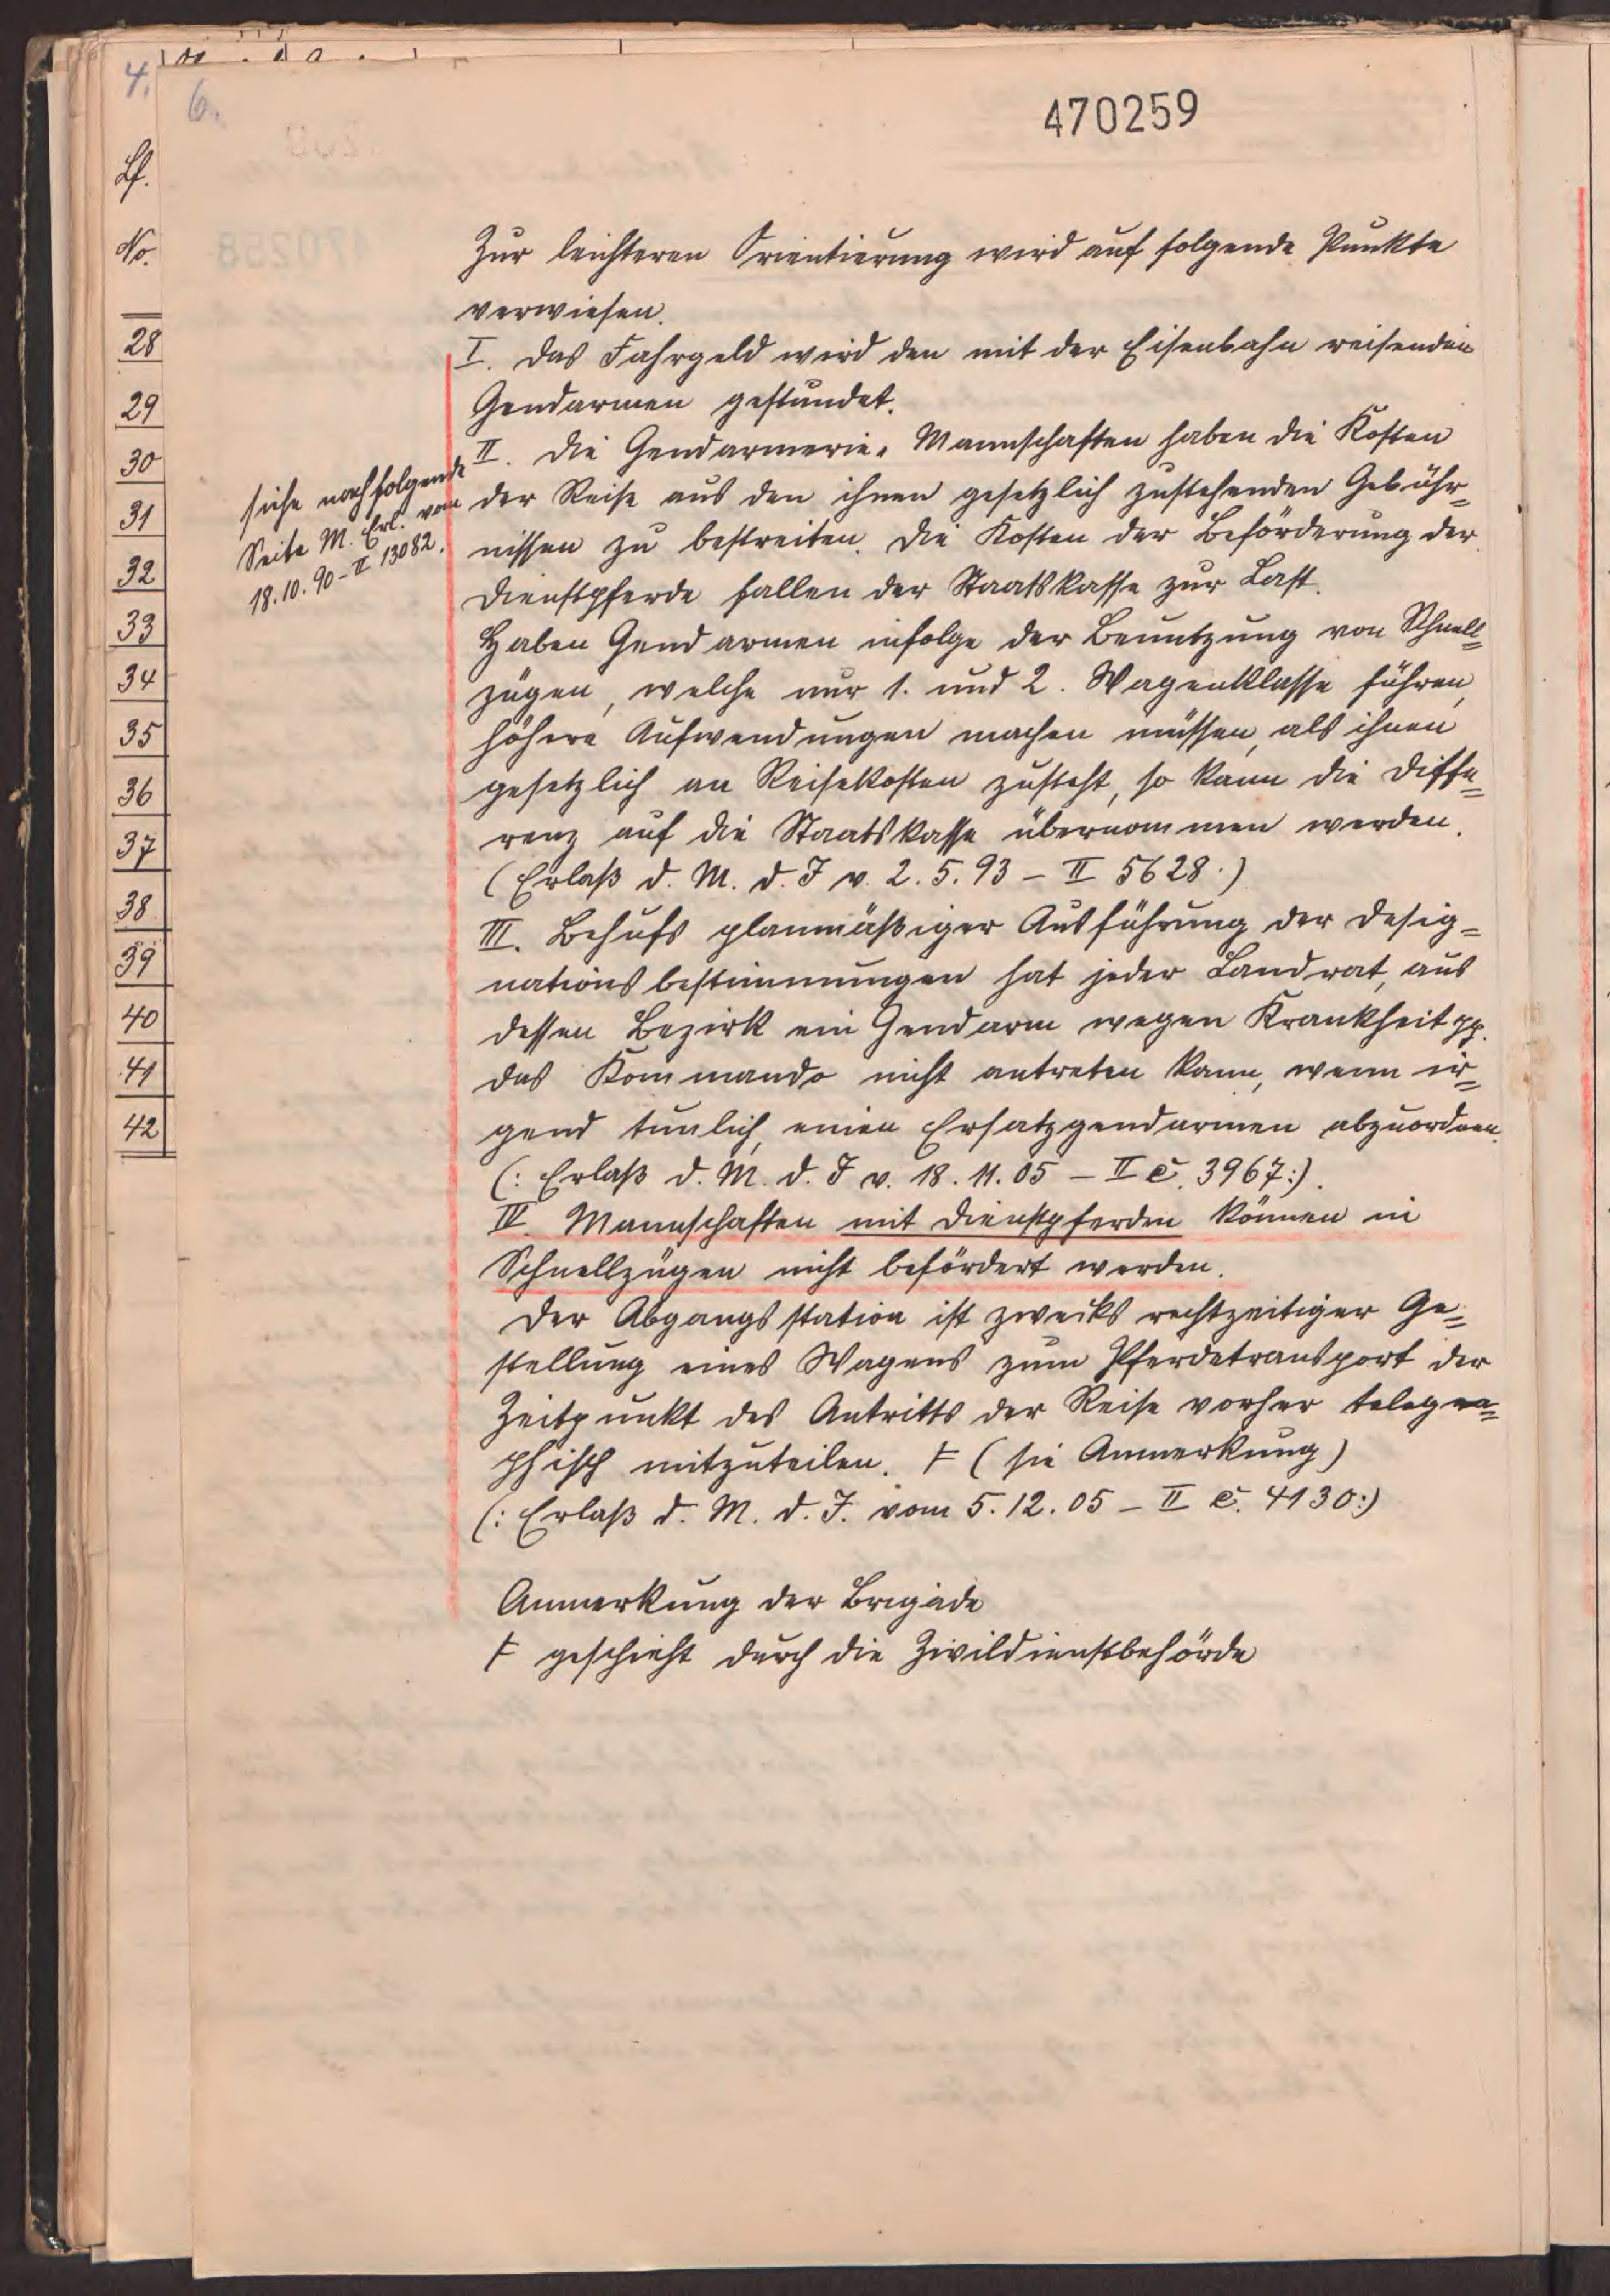 4.
6.
470259
Lf.
No.
28
29
30
31
32
33
34
35
36
37
38
39
40
41
42
siehe nachfolgende
Seite M. Erl. vom
18.10.90 – II 13082.
Zur leichteren Orientierung wird auf folgende Punkte
verwiesen.
I. Das Fahrgeld wird den mit der Eisenbahn reisenden
Gendarmen gestundet.
II. Die Gendarmerie-Mannschaften haben die Kosten
der Reise aus den ihnen gesetzlich zustehenden Gebühr=
nissen zu bestreiten. Die Kosten der Beförderung der
Dienstpferde fallen der Staatskasse zur Last.
Haben Gendarmen infolge der Benutzung von Schnell=
zügen, welche nur 1. und 2. Wagenklasse führen,
höhere Aufwendungen machen müssen, als ihnen
gesetzlich an Reisekosten zusteht, so kann die Diffe=
renz auf die Staatskasse übernommen werden.
(Erlaß d. M. d. J v. 2.5.93 – II 5628.)
III. Behufs planmäßiger Ausführung der Desig=
nationsbestimmungen hat jeder Landrat, aus
dessen Bezirk ein Gendarm wegen Krankheit pp.
das Kommando nicht antreten kann, wenn ir=
gend tunlich, einen Ersatzgendarmen abzuordnen.
(: Erlaß d. M. d. J v. 18.11.05 – II c. 3967:).
IV. Mannschaften mit Dienstpferden können in
Schnellzügen nicht befördert werden.
Der Abgangsstation ist zwecks rechtzeitiger Ge=
stellung eines Wagens zum Pferdetransport der
Zeitpunkt des Antritts der Reise vorher telegra=
phisch mitzuteilen. F (sie Anmerkung)
(: Erlaß d. M. d. J. vom 5.12.05 – II c. 4130:)
Anmerkung der Brigade
F geschieht durch die Zivildienstbehörde